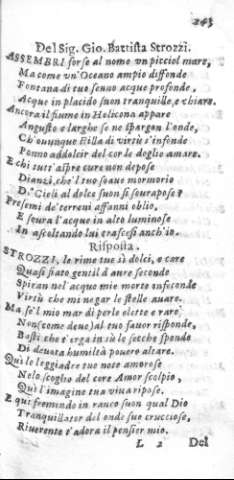 243
Del Sig. Gio. Battista Strozzi.
ASSEMBRI forse al nome un picciol mare,
Ma come un'Oceano ampio diffonde
Fontana di tuo senno acque profonde,
Acque in placido suon tranquille, e chiare.
Ancora il fiume in Helicona appare
Angusto e larghe se ne spargon l'onde,
Ch'ovunque stilla di virtù s'infonde
Ponno addolcir del cor le doglie amare.
E chi tutt'aspre cure non depose
Dianzi, che'l tuo soave mormorio
D' Cieli al dolce suon si sourapose?
Presemi de'terreni affanni oblio,
E scura l'acque in alto luminose
In ascoltando lui crascesi anch'io.
Risposta.
STROZZI, le rime tue sì dolci, e care
Quasi fiato gentil d'aure seconde
Spiran nel'acquo mie morte infeconde
Virtù che mi negar le stelle avare.
Ma se'l mio mar di perle elette e rare
Non (come deue) al tuo favor risponde,
Basti che s'erga in sù le secche sponde
Di devota humiltà povero altare.
Quì le leggiadre tue note amorose
Nelo scoglio del core Amor scolpio,
Quì l'imagine tua viva ripose.
E quì fremendo in rauco suon qual Dio
Tranquillator del onde sue crucciose,
Riverente t'adora il pensier mio.
L 2 Del